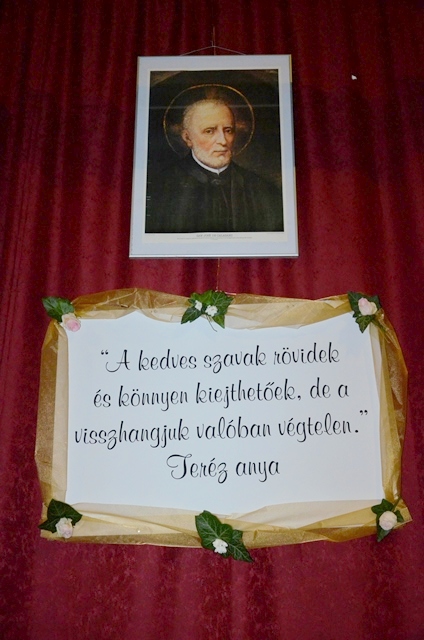 “A kedves szavak rövidek
és könnyen kiejthetőek, de a
visszhangjuk valóban végtelen.”
Teréz anya